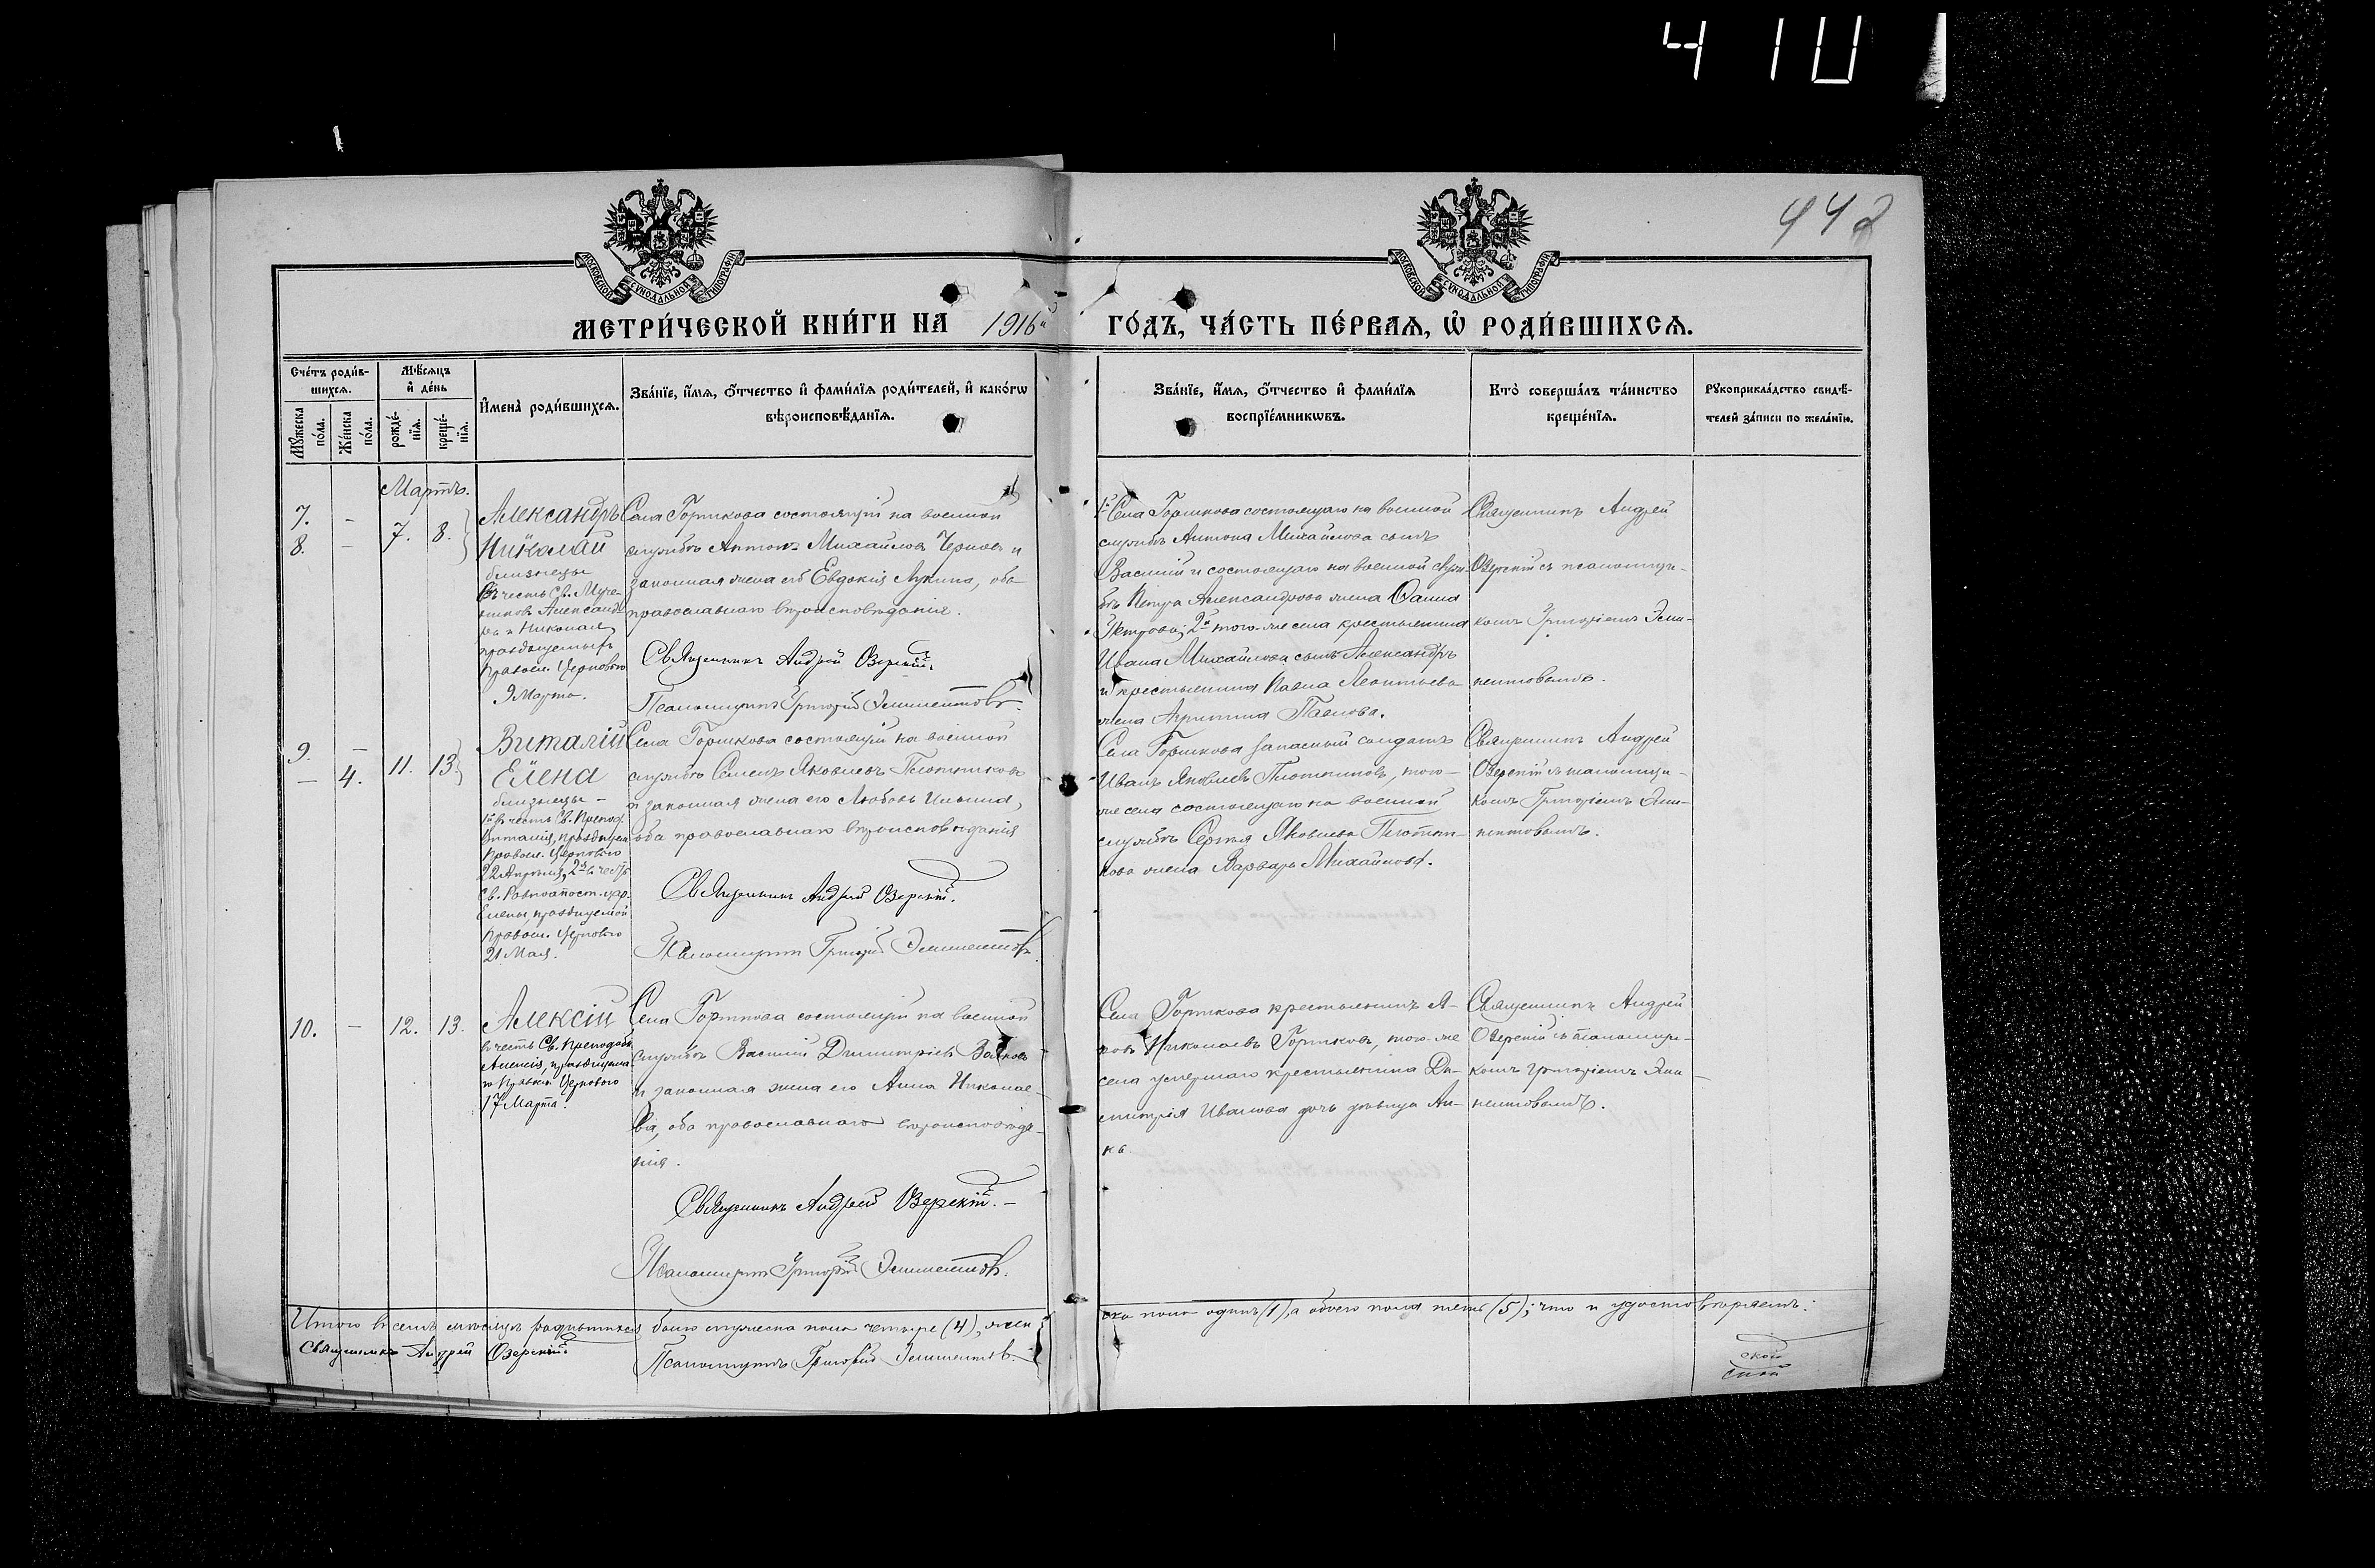 410
442
МОСКОВСКОЙ СѴНОДАЛЬНОЙ ТИПОГРАФІИ
МОСКОВСКОЙ СѴНОДАЛЬНОЙ ТИПОГРАФІИ
МЕТРИ́ЧЕСКОЙ КНИ́ГИ НА 1916й ГО́ДЪ, ЧА́СТЬ ПЕ́РВАѦ, Ѡ҆ РОДИ́ВШИХСѦ.
Счетъ роди́в-
шихсѧ.
Мꙋ́жеска
по́ла.
Же́нска
по́ла.
Мѣ́сѧцъ
и҆ де́нь
рожде́-
нїѧ.
креще́-
нїѧ.
И҆мена̀ роди́вшихсѧ.
Зва́нїе, и҆́мѧ, ѻ҆́тчество и҆ фами́лїѧ роди́телей, и҆ како́гѡ
вѣроисповѣ́данїѧ.
Зва́нїе, и҆́мѧ, ѻ҆́тчество и҆ фами́лїѧ
воспрїе́мникѡвъ.
Кто̀ соверша́лъ та́инство
креще́нїѧ.
Рꙋкоприкла́дство свидѣ́-
телей за́писи по жела́нїю.
Мартъ.
7.
8.
–
–
7.
8.
Александръ
Николай
близнецы
Въ честь Св. Муче-
никовъ Александ-
ра и Николая,
празднуемыхъ
Правосл. Церковію
9 Марта.
Села Горшкова состоящій на военной
службѣ Антонъ Михайловъ Черновъ и
законная жена его Евдокія Лукина, оба
православнаго вѣроисповѣданія.
Священникъ Андрей Озерскій.
Псаломщикъ Григорій
1й Села Горшкова состоящаго на военной
службѣ Антона Михайлова сынъ
Василій и состоящаго на военной служ-
бѣ Петра Александрова жена
Петрова; 2й того-же села крестьянина
Ивана Михайлова сынъ Александръ
и крестьянина Павла Леонтьева
жена Павлова.
Священникъ Андрей
Озерскій съ псаломщи-
комъ Григоріемъ
9.
–
–
4.
11.
13.
Виталій
Елена
близнецы –
1й въ честь Св. Препод.
Виталія, празднуем.
Правосл. Церковію
22 Апрѣля, 2я въ честь
Св. Равноапост. цар.
Елены, празднуемой
Правосл. Церковію
21 Мая.
Села Горшкова состоящій на военной
службѣ Семенъ Яковлевъ Плотниковъ
и законная жена его Любовь Ильина,
оба православнаго вѣроисповѣданія
Священникъ Андрей Озерскій.
Псаломщикъ Григорій
Села Горшкова запасный солдатъ
Иванъ Яковлевъ Плотниковъ, того-
же села состоящаго на военной
службѣ Сергѣя Яковлева Плотни-
кова жена Варвара Михайлова.
Священникъ Андрей
Озерскій съ псаломщи-
комъ Григоріемъ
10.
–
12.
13.
Алексій
въ честь Св. Преподоб.
Алексія, празднуема-
го Правосл. Церковію
17 Марта.
Села Горшкова состоящій на военной
службѣ Василій Димитріевъ Волковъ
и законная жена его Анна Николае-
ва, оба православнаго вѣроисповѣда-
нія.
Священникъ Андрей Озерскій. –
Псаломщикъ Григорій
Села Горшкова крестьянинъ Я-
ковъ Николаевъ Горшковъ, того-же
села умершаго крестьянина Ди-
митрія Иванова дочь дѣвица Ан-
на
Священникъ Андрей
Озерскій съ псаломщи-
комъ Григоріемъ
Итого въ семъ мѣсяцѣ родившихся было мужеска пола четыре (4), жен-
ска пола одинъ (1), а обоего пола пять (5); что и удостовѣряемъ:
Священникъ Андрей Озерскій
Псаломщикъ Григорій